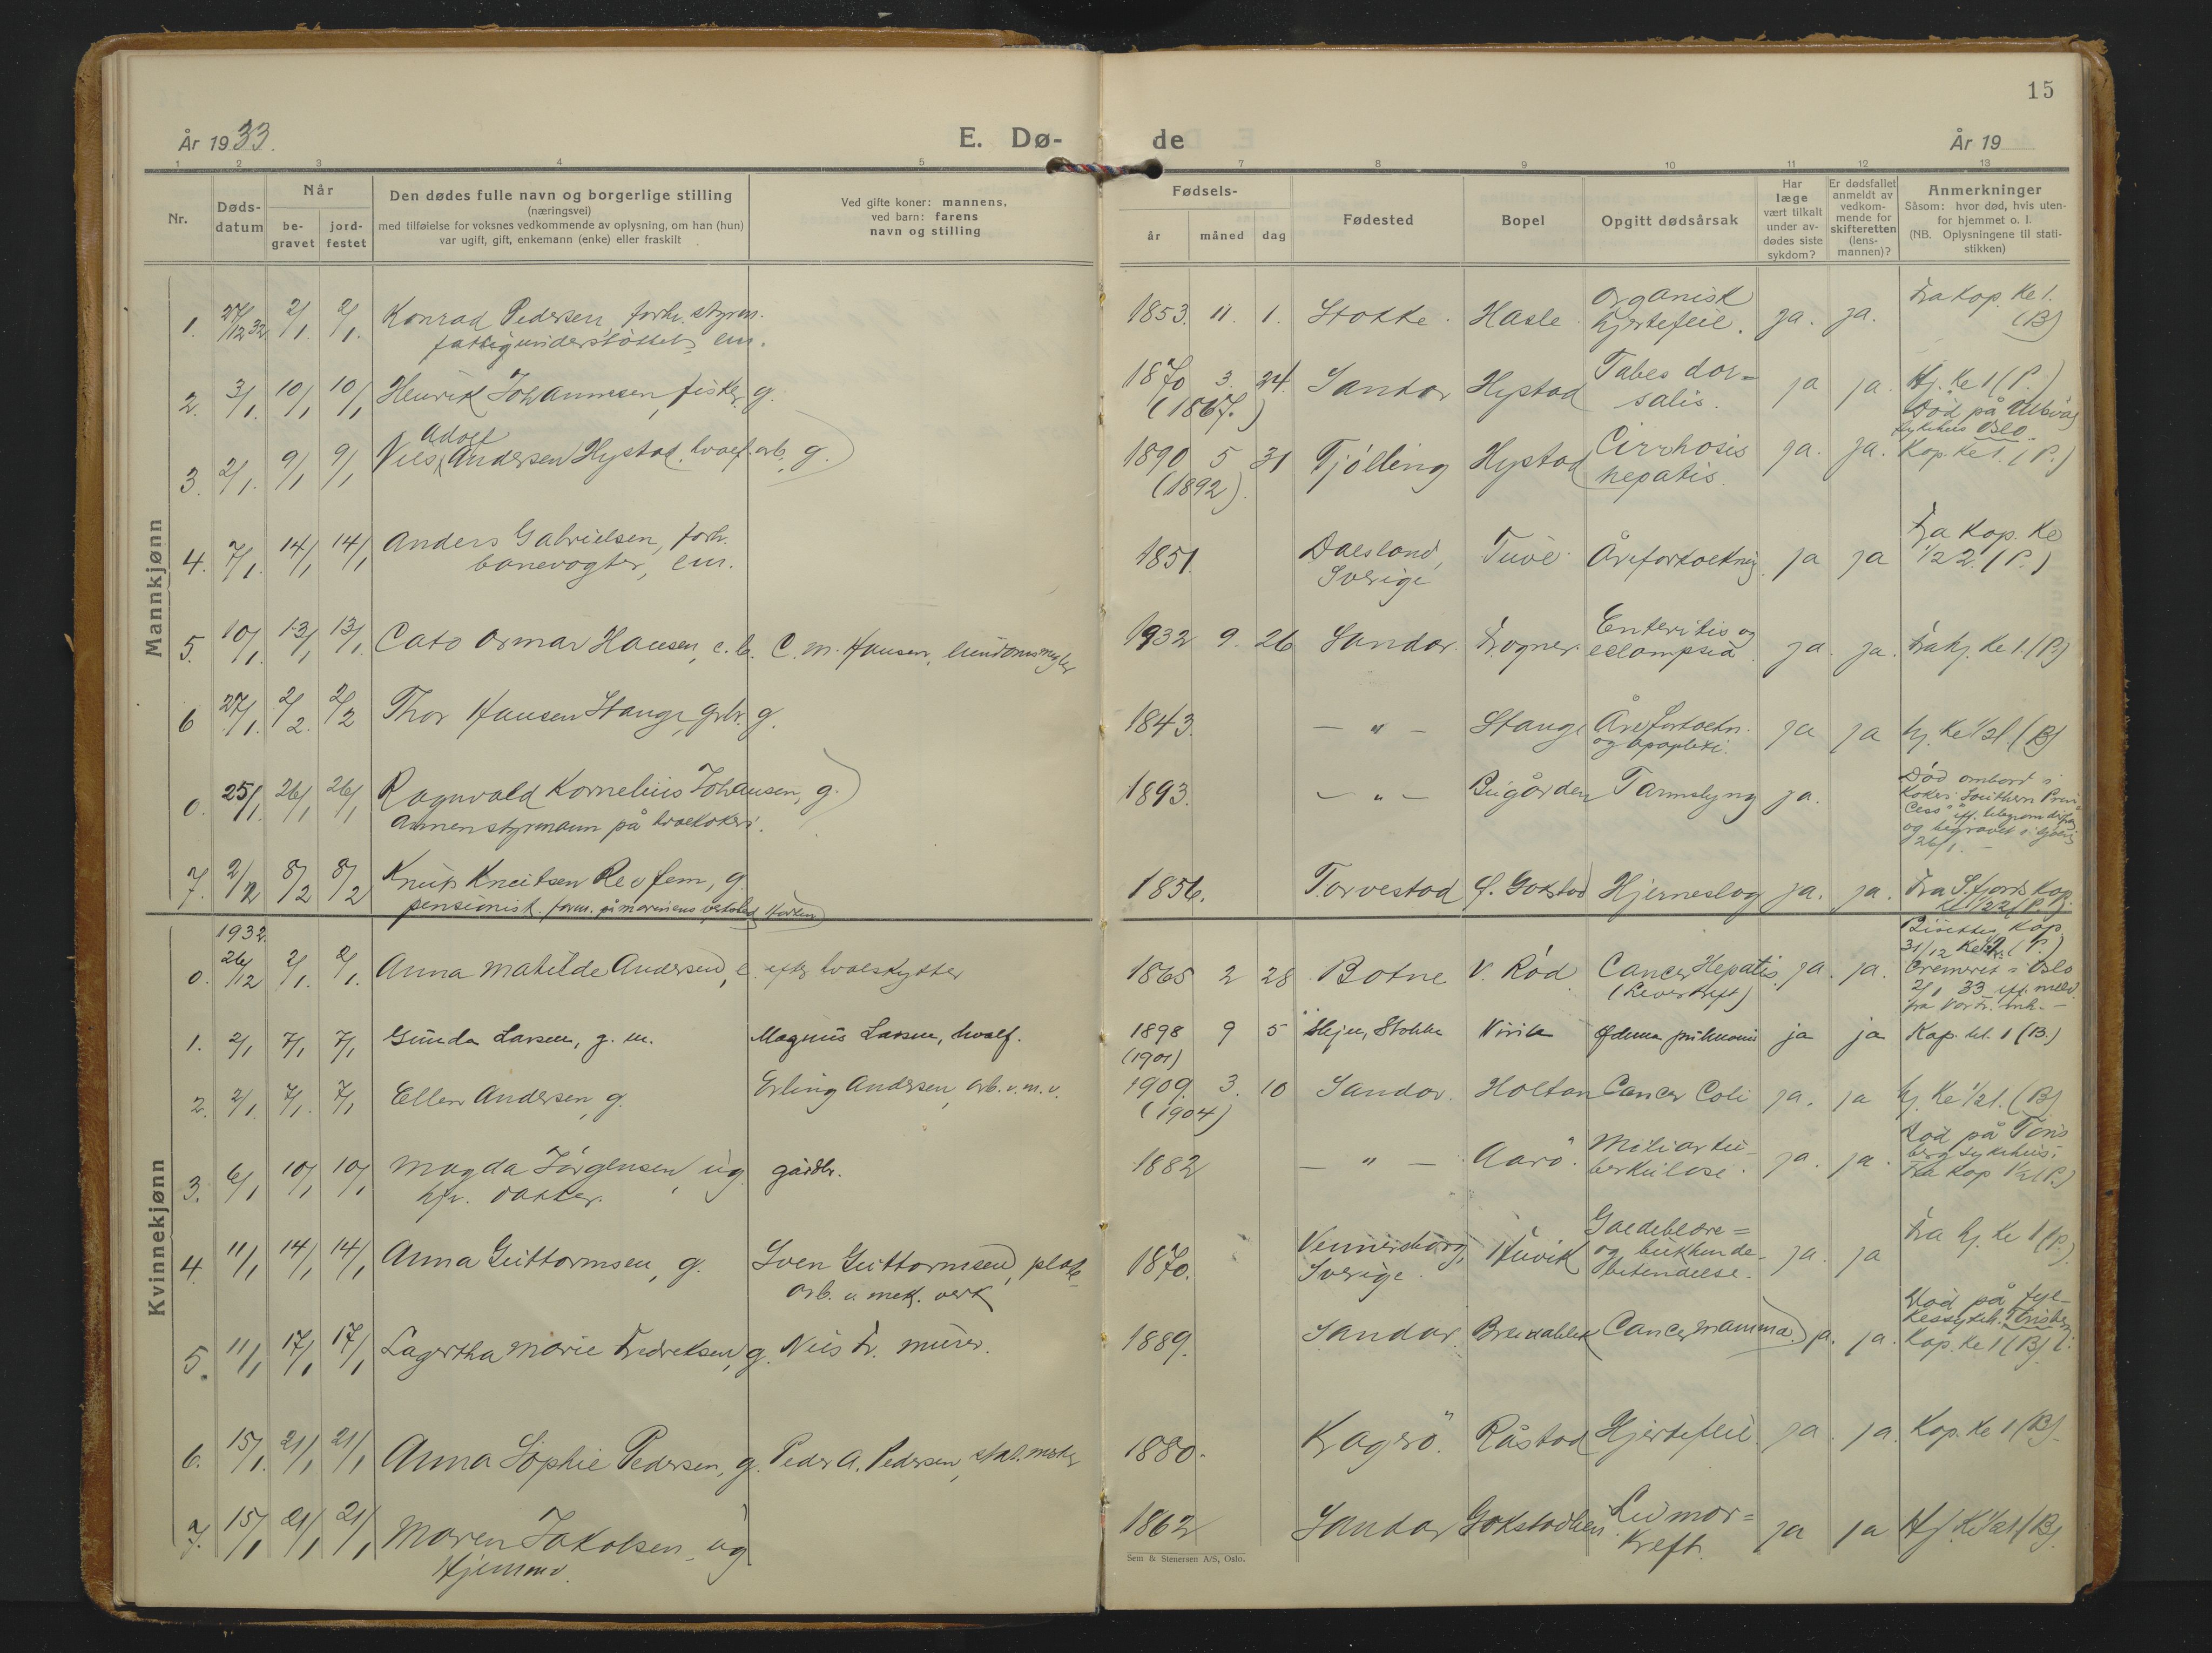 15
År 1933.
E. Dø-
de
År 19
1 2 3 4 5 7 8 9 10 11 12 13
Nr.
Døds-
datum
Når
be-
gravet
jord-
festet
Den dødes fulle navn og borgerlige stilling
(næringsvei)
med tilføielse for voksnes vedkommende av oplysning, om han (hun)
var ugift, gift, enkemann (enke) eller fraskilt
Ved gifte koner: mannens,
ved barn: farens
navn og stilling
Fødsels-
år måned dag
Fødested
Bopel
Opgitt dødsårsak
Har
læge
vært tilkalt
under av-
dødes siste
sykdom?
Er dødsfallet
anmeldt av
vedkom-
mende for
skifteretten
(lens-
mannen)?
Anmerkninger
Såsom: hvor død, hvis uten-
for hjemmet o. l.
(NB. Oplysningene til stati-
stikken)
Mannkjønn
1. 27/12 32 2/1. 2/1. Konrad Pedersen, forh. styrm.
fattigunderstöttet, em.
1853. 11. 1. Stokke. Hasle. Organisk
hjertefeil. ja. ja. Fra Kap. Kl 1.
(B)
2. 3/1. 10/1 10/1 Henrik Johannesen, fisker g.
1870 3. 24. Sandar Hystad Tabes dor=
(1867.) salis. ja ja. Hj. Kl 1 (P.)
3. 2/1. 9/1 9/1 Nils Adolf Andersen Hystad, hvalf. arb. g.
1890 5 31 Tjölling Hystad Cirrhosis
(1892). hepatis. ja. ja. Død på Ullevål
sykehus Oslo.
Kap. Kl 1. (P.)
4. 7/1. 14/1 14/1 Anders Gabrielsen, forh.
banevogter, em.
1851. Dalsland,
Sverige Tuve. Åreforkalkning. ja ja Fra Kap. Kl
1/2 2. (P.)
5. 10/1. 13/1 13/1. Cato Ormar Hansen, e. b. C. M. Hansen, eiendomsmegler
1932 9. 26 Sandar. Fogner. Enteritis og
eclampsia. ja. ja. Fra hj. Kl 1. (B)
6 27/1. 2/2. 2/2 Thor Hansen Stange, gbr. g.
1843. — " — Stange Åreforkalkn.
og apoplexi. ja ja hj. Kl 1/2 1. (B)
0. 25/1. 26/1 26/1 Ragnvald Kornelius Johansen, g.
Annenstyrmann på hvalkokeri.
1893. — " — Bugården Tarmslyng ja. Død ombord i
Kokeri Southern Prin-
cess
og begravet
26/1. —
7. 2/2 8/2 8/2 Knut Knutsen Revfem, g.
pensionist. form. på marinens verksted Horten
1856. Torvestad Ø. Gokstad Hjerneslag ja. ja. Fra S.fjords Kap.
Kl. 1/2 2 (P.)
Kvinnekjønn
1932.
0. 26/12 2/1. 2/1. Anna Matilde Andersen, e. efter hvalskytter
1865 2 28 Botne V. Rød Cancer Hepatis.
(Leverkreft) ja. ja. Bisettes, Kap.
31/12
Cremeret i Oslo
2/1 33 eft. meld.
1. 2/1 7/1 7/1 Gunda Larsen, g. m. Magnus Larsen, hvalf.
1898 9 5 Skjee, Stokke Virik Ødema pulmonis ja ja Kap. kl. 1 (B.)
(1901)
2. 2/1. 7/1. 7/1 Ellen Andersen, g. Erling Andersen, arb. v. m. v.
1909. 3. 10 Sandar. Holtan Cancer Coli ja. ja hj. Kl 1/2 1. (B)
(1904)
3. 6/1 10/1 10/1 Magda Jörgensen, ug. gårdbr.
hfr. datter.
1882 — " — Aarö. Miliartu-
berkulose. ja. ja. Død på Töns
berg sykehus.
Fra Kap 1/2 1 (P.)
4. 11/1 14/1 14/1 Anna Guttormsen, g. Sven Guttormsen, plate
arb. v. mek. verk
1870. Vennersborg,
Sverige. Huvik Galdeblære=
og bukhinde-
betendelse. ja. ja Fra hj. Kl 1 (P.)
5. 11/1 17/1 17/1 Lagertha Marie Fredriksen, g. Nils Fr. murer.
1889. Sandar. Breidablikk Cancer mamma. ja. ja. Død på fyl-
kessykeh. Tönsberg
Kap. Kl 1 (B).
6. 15/1. 21/1 21/1 Anna Sophie Pedersen, g. Peder A. Pedersen, stat. mester
1880. Kragerö. Råstad Hjertefeil. ja. ja. Kap. Kl 1 (B).
7. 15/1 21/1 21/1 Maren Jakobsen, ug
Hjemmev.
1862 Sandar Gokstadlien. Livmor=
kreft. ja ja Hj. Kl 1/2 1 (B).
Sem & Stenersen A/S, Oslo.